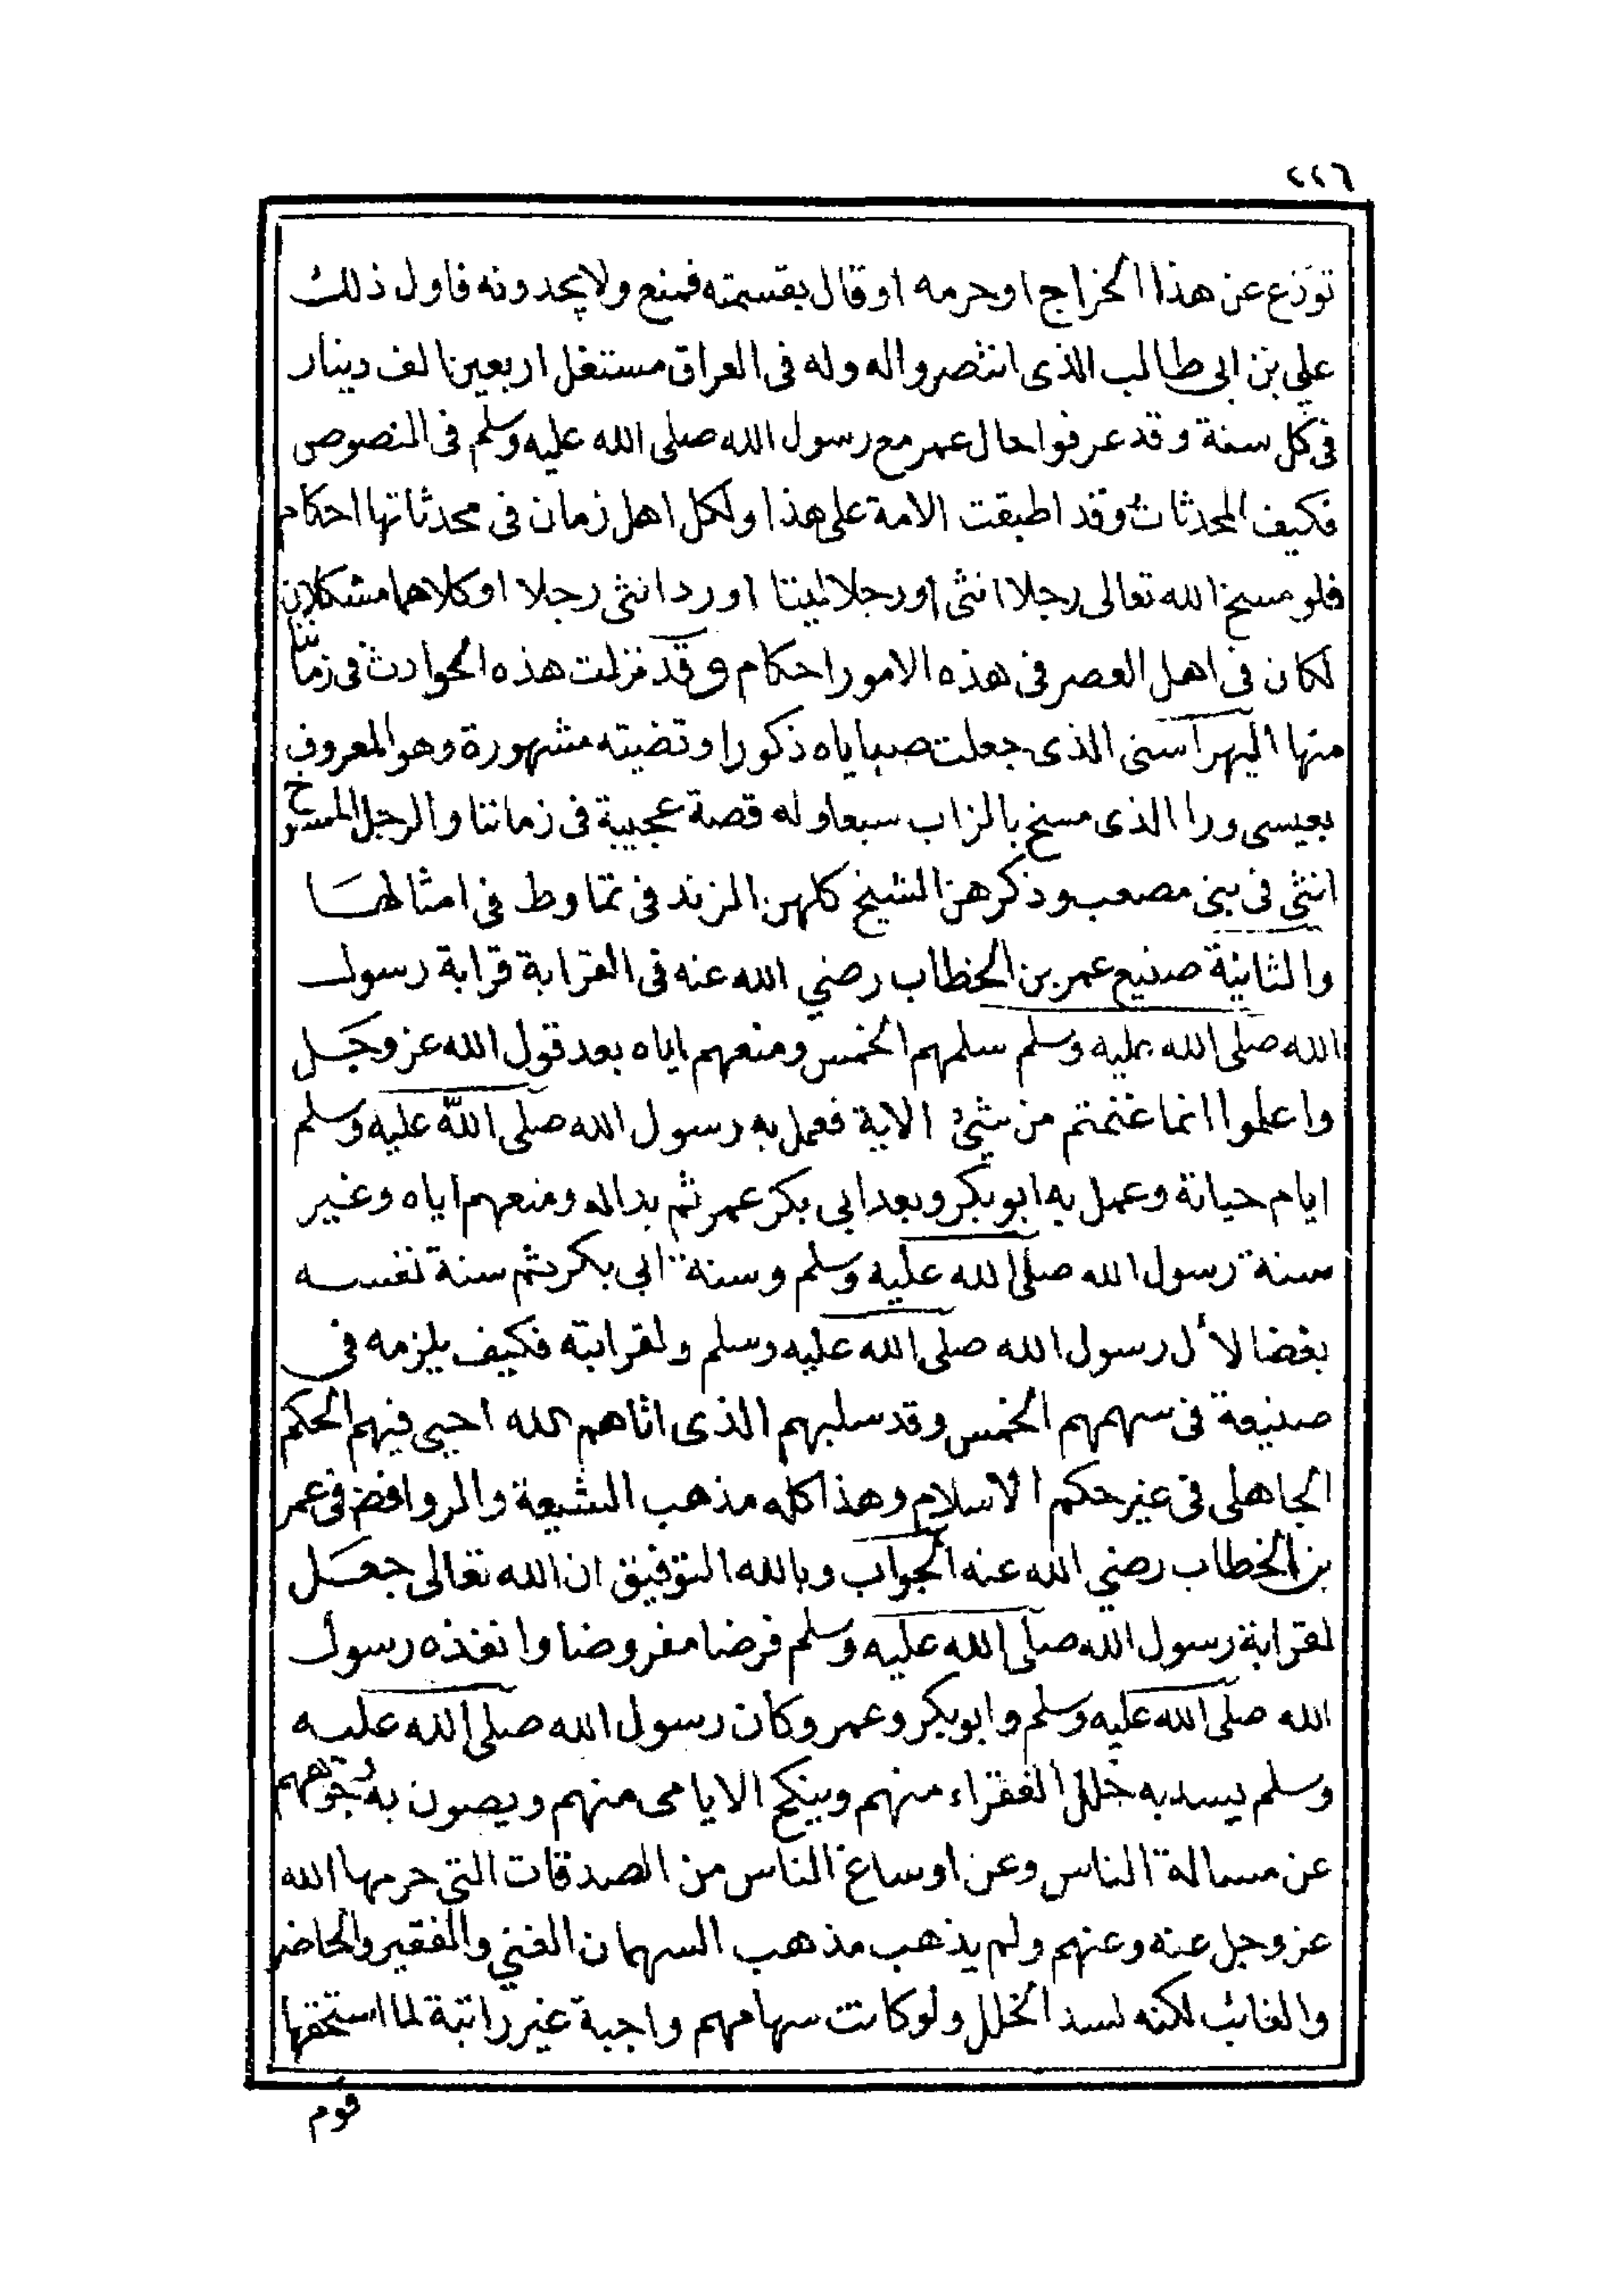 ٢٢٦
تورع عن هذا الخراج او حرمه او قال بقسمته فمنع ولا يجدونه فاول ذلك
علي بن ابى طالب الذى انتصروا له وله فى العراق مستغل اربعين الف دينار
فى كل سنة وقد عرفوا حال عمر مع رسول الله صلى الله عليه وسلم فى النصوص
فكيف المحدثات وقد اطبقت الامة على هذا ولكل اهل زمان فى محدثاتها احكام
فلو مسخ الله تعالى رجلا انثى اورجلا اورد انثى رجلا اوكلاهما مشكلان
لكان فى اهل العصر فى هذه الامور احكام وقد نزلت هذه الحوادث فى زماننا
منها الذى جعلت صباياه ذكورا وقضيته مشهورة وهو المعروف
بعيسى ورا الذى مسخ بالزاب سبعا وله قصة عجيبة فى زماننا والرجل الممسوخ
انثى فى بنى مصعب وذكرهن الشيخ فى امثالها
والثانية صنيع عمر بن الخطاب رضي الله عنه فى القرابة قرابة رسول
الله صلى الله عليه وسلم سلمهم الخمس ومنعهم اياه بعد قول الله عز وجل
واعلموا انما غنمتم من شئ الاية فعمل به رسول الله صلى الله عليه وسلم
ايام حياتة وعمل به ابوبكر وبعد ابى بكر عمر ثم بداله ومنعهم اياه وغير
سنة رسول الله صلى الله عليه وسلم وسنة ابى بكر ثم سنة نفسه
بغضا لأل رسول الله صلى الله عليه وسلم ولقرابته فكيف يلزمه فى
صنيعة فى سهمهم الخمس وقد سلبهم الذى اتاهم الله احيى فيهم الحكم
الجاهلى فى غير حكم الاسلام وهذا كله مذهب الشيعة والروافض فى عمر
بن الخطاب رضي الله عنه الجواب وبالله التوفيق ان الله تعالى جعل
لقرابة رسول الله صلى الله عليه وسلم فرضا مفروضا وانفذه رسول
الله صلى الله عليه وسلم وابوبكر وعمر وكان رسول الله صلى الله عليه
وسلم يسد به خلل الفقراء منهم وينكح الايامى منهم ويصون به وجوههم
عن مسالة الناس وعن اوساخ الناس من الصدقات التى حرمها الله
عز وجل عنه وعنهم ولم يذهب مذهب السهمان الغني والفقير والحاضر
والغائب لكنه لسد الخلل ولو كانت سهامهم واجبة غير راتبة لما استحقها
قوم